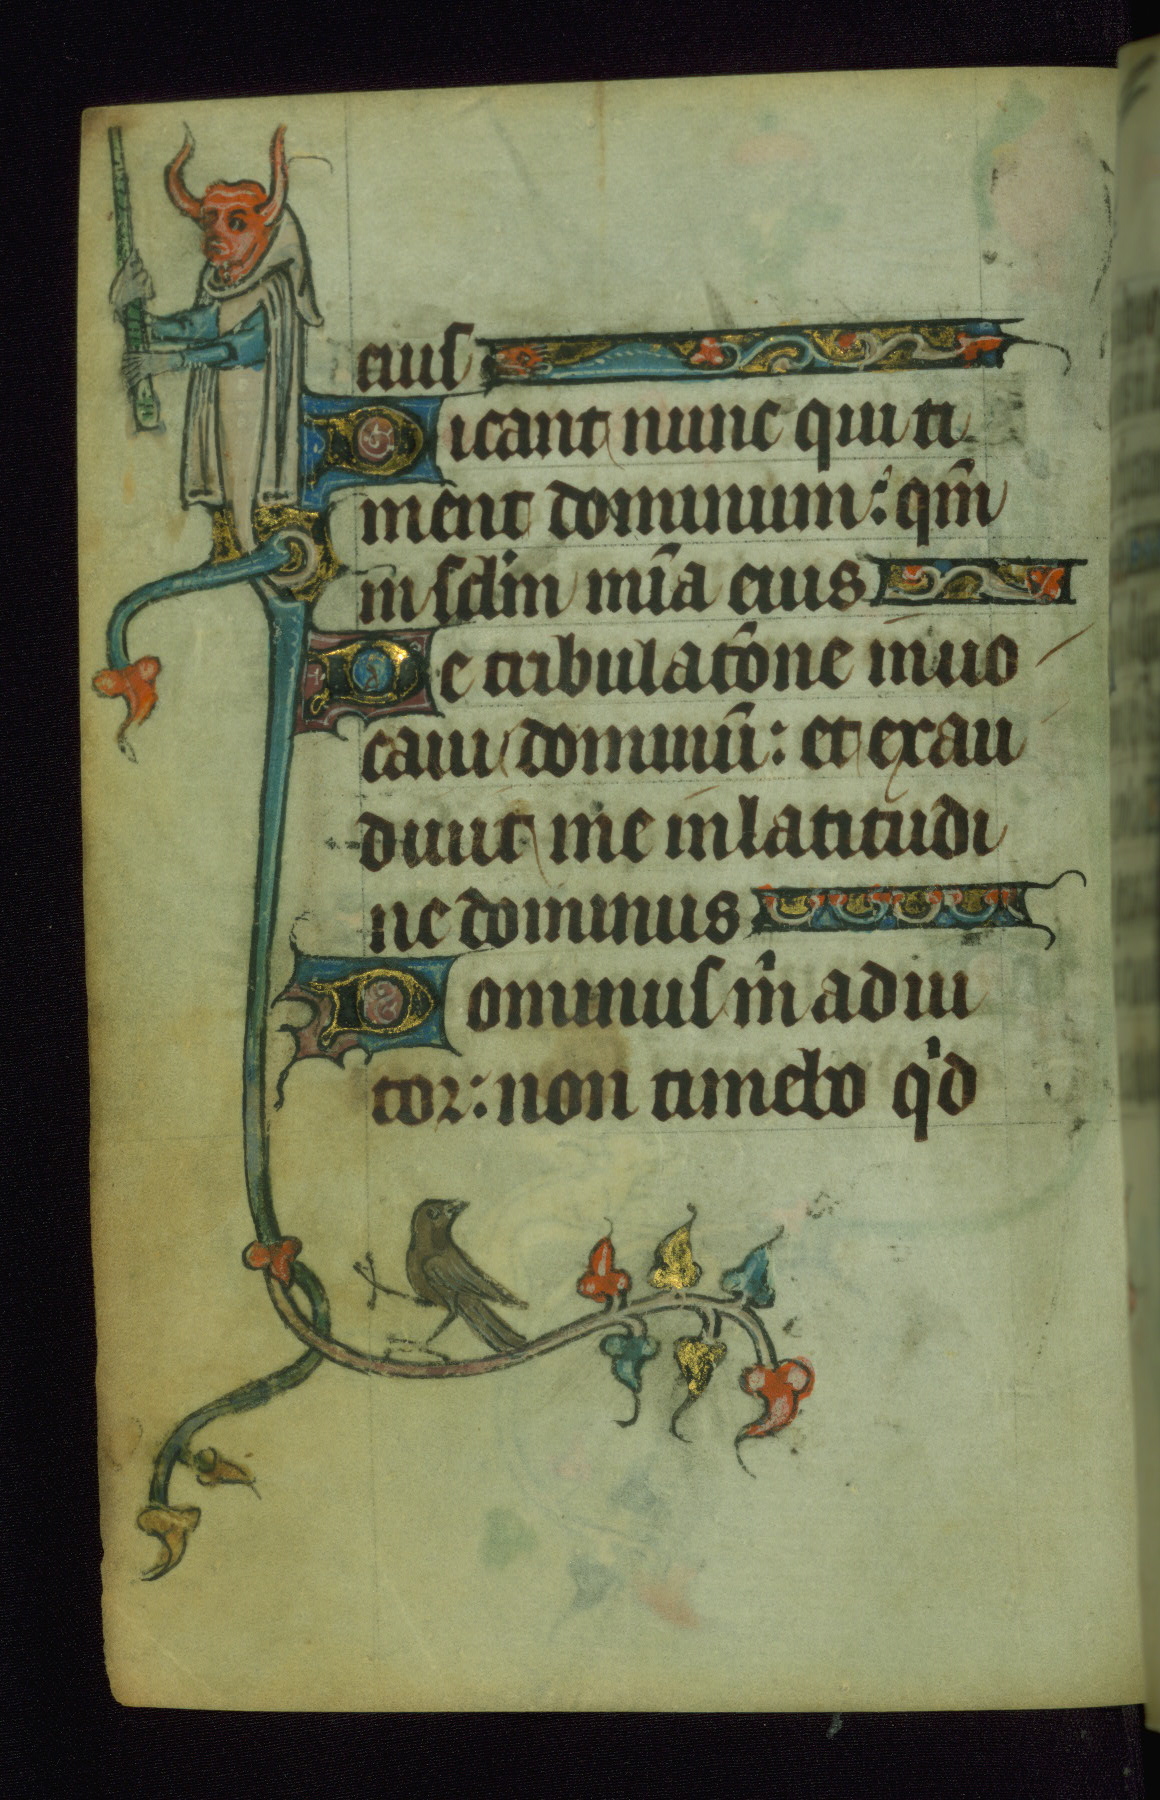 eius
Dicant nunc qui ti
ment dominum: qm̄
in sclm̄ mīa eius
De tribulatōne inuo
caui dominū: et exau
diuit me in latitudi
ne dominus
Dominus m̄ adiu
tor: non timebo qd